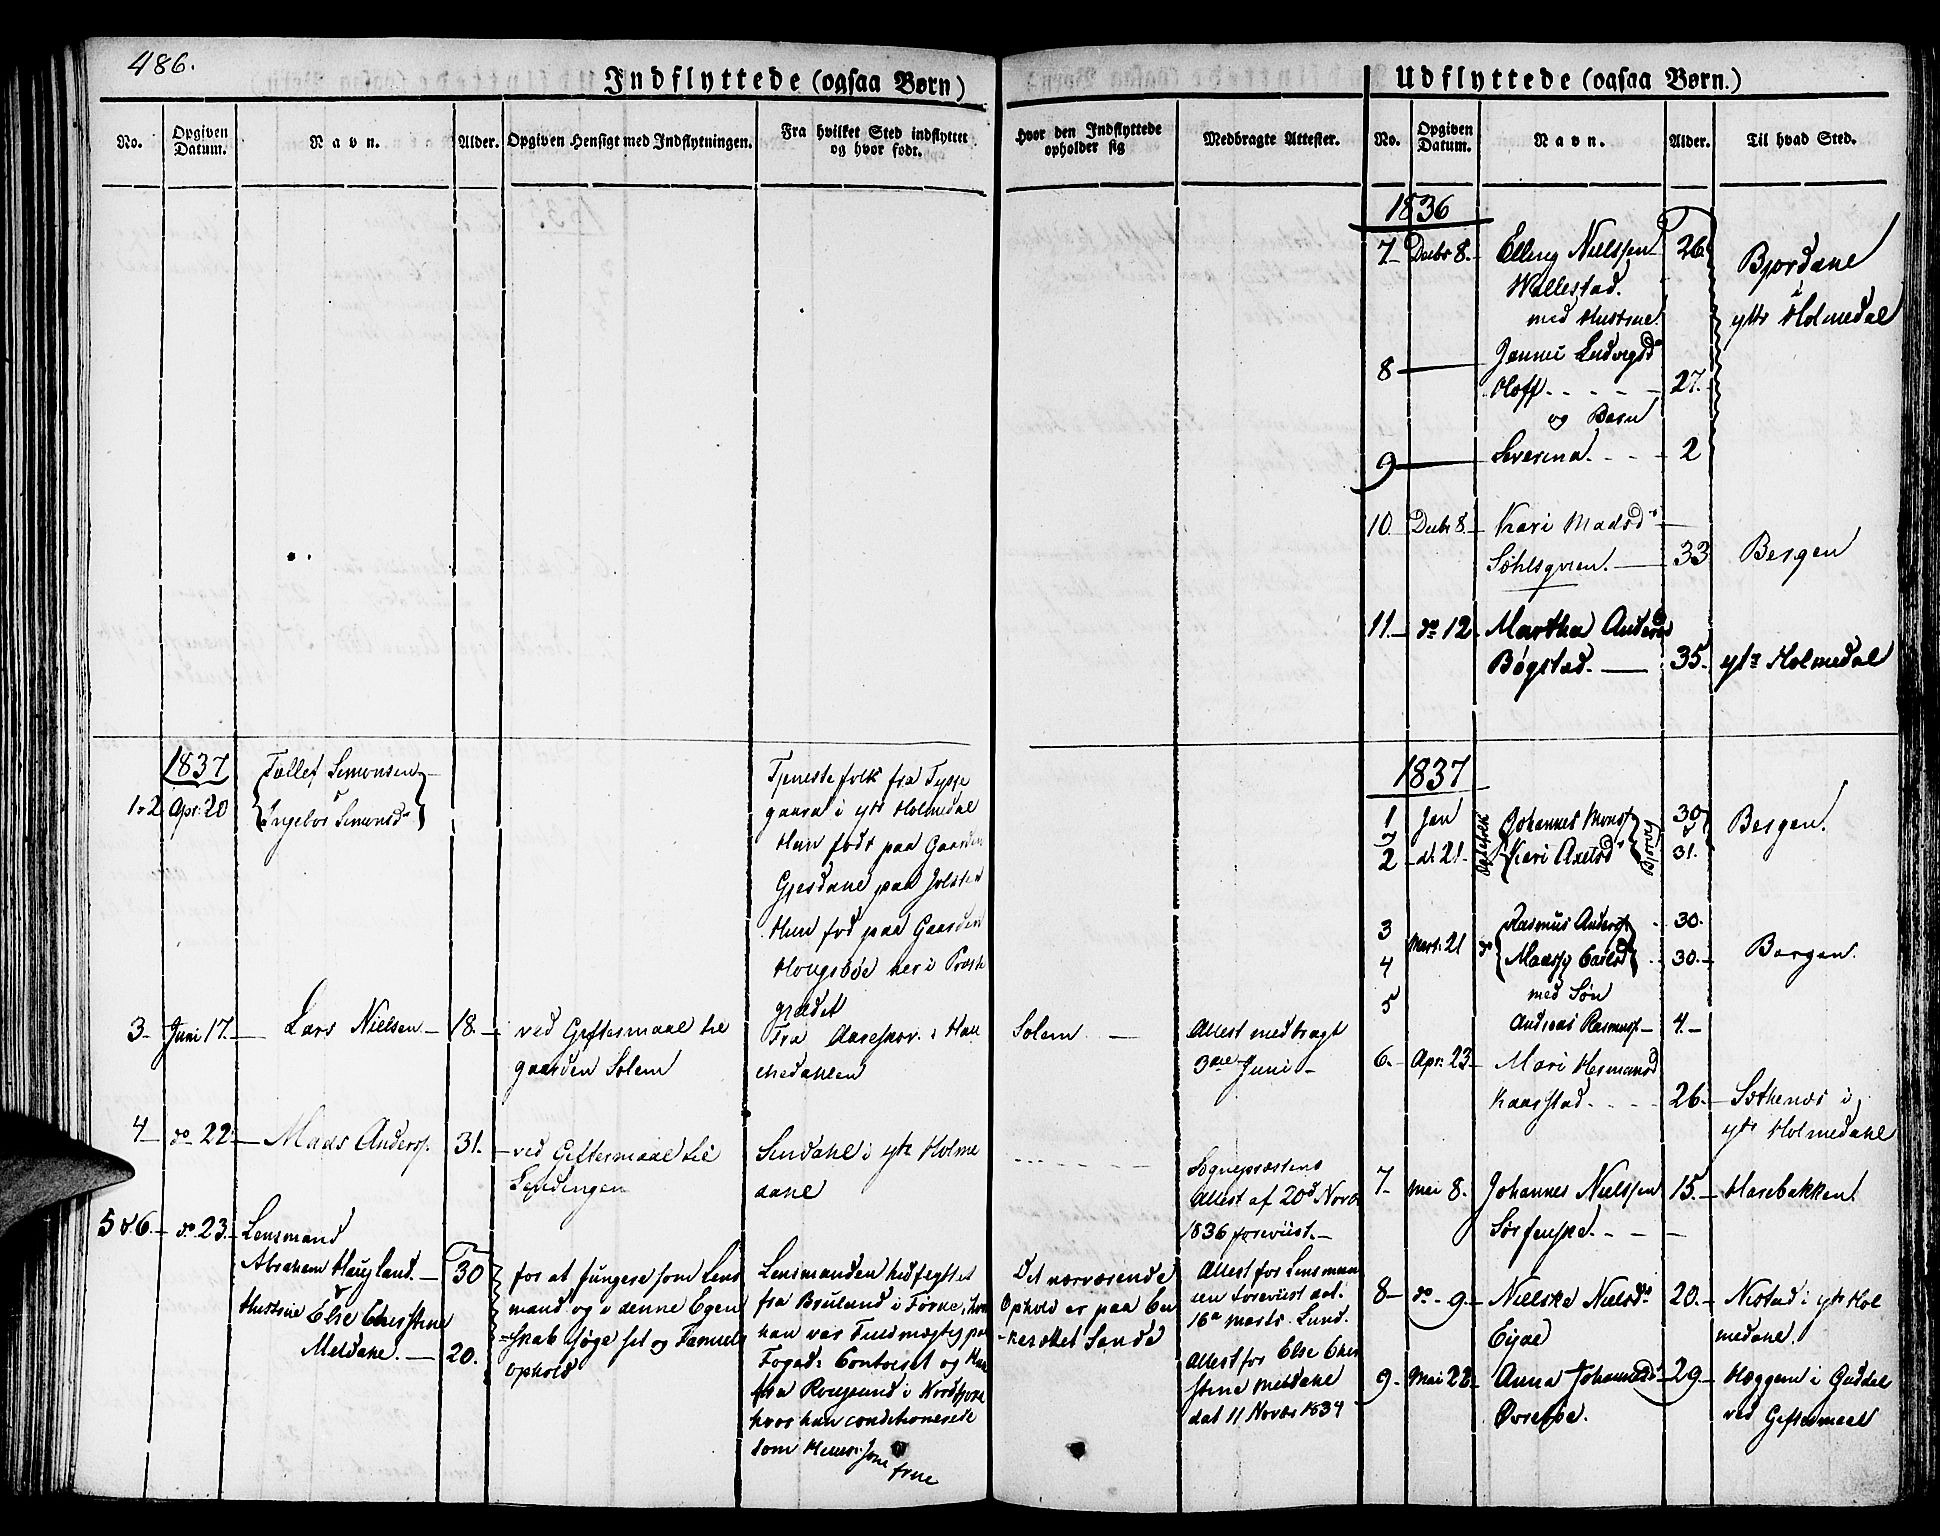 486.
Indflyttede (ogsaa Børn)
No.
Opgiven Datum.
Navn.
Alder.
Opgiven Hensigt med Indflytningen.
Fra hvilket Sted indflyttet
og hvor født.
Hvor den Indflyttede
opholder sig
Medbragte Attester.
1837
1 & 2 Apr: 20
Tollef Simonsen
&
Ingebor Simonsdr
Tjenestefolk fra Tysse
gaard i ytr Holmedal
Han født paa Gaarden
Gjesdane paa Jølster
Hun fød paa Gaarden
Hougsbøe her i Præste
gieldet
3 Juni 17. Lars Nielsen 18.
ved Giftermaal til
gaarden Solem
Fra Aareskov i Hau
kedahlen
Solem
Attest medbragt
3die Juni
4 do 22 Mads Anders. 31.
ved Giftermaal til
Lendingen
Sendahl i ytr Holme
dahl
Sognepræstens
Attest af 20d Novbr
1836 foreviist.
5 & 6. do 23.
Lensmand
Abraham Haugland. 30
&
Hustrue Else Christine
Meldahl. 20.
for at fungere som Lens
mand og i denne Egen
skab søge sit og Familie
ophold
Lensmanden hidflyttet
fra Bruland i Førde, hvor
han var Fuldmægtig paa
Foged Contoiret og Han
fra Rougsund i Nordfjord
hvor hun conditionerede
som Huus Jom
frue
Det nærværende
Ophold er paa En
kesædet Sande
Attest for Lensman
den foreviist dat.
16d marts. Lund.
Attest for Else Chri
stine Meldahl
dat 11 Novbr 1834
Udflyttede (ogsaa Børn.)
No.
Opgiven Datum.
Navn.
Alder.
Til hvad Sted.
1836
7 Decbr 8. Elling Nielssen 26
Wallestad.
med Hustrue
Bjordane
i
ytr Holmedal
8 Jannei Ludvigsdr
Hoff 27.
og Barn
9 Severina. 2
10 Decbr 8 Kari Madsdr
Sæhlsgrien. 33 Bergen
11. do 12 Martha Andersd
Bøgstad. 35. ytr Holmedal
1837
1 Jan Johannes Mons. 30
&
2 dt 21. Kari Axelsdr 31.
Bergen.
3 Rasmus Anders. 30.
4 Mart: 21 do Carlsd 30.
Bergen.
5 med Søn
Andreas Rasmus. 4.
6. Apr: 23 Mari Hermansd
Kaarstad. 26. Sættenæs i
ytr Holmedahl
7 Mai 8. Johannes Nielssen 15. Harebakken
Sørfenske.
8 do 9. Nielske Nielsdr 20. Nistad i ytr Hol
Eijde medahl.
9 Mai 22 Anna Johannesd 29 Hæggem i Guddal
ved Giftermaal